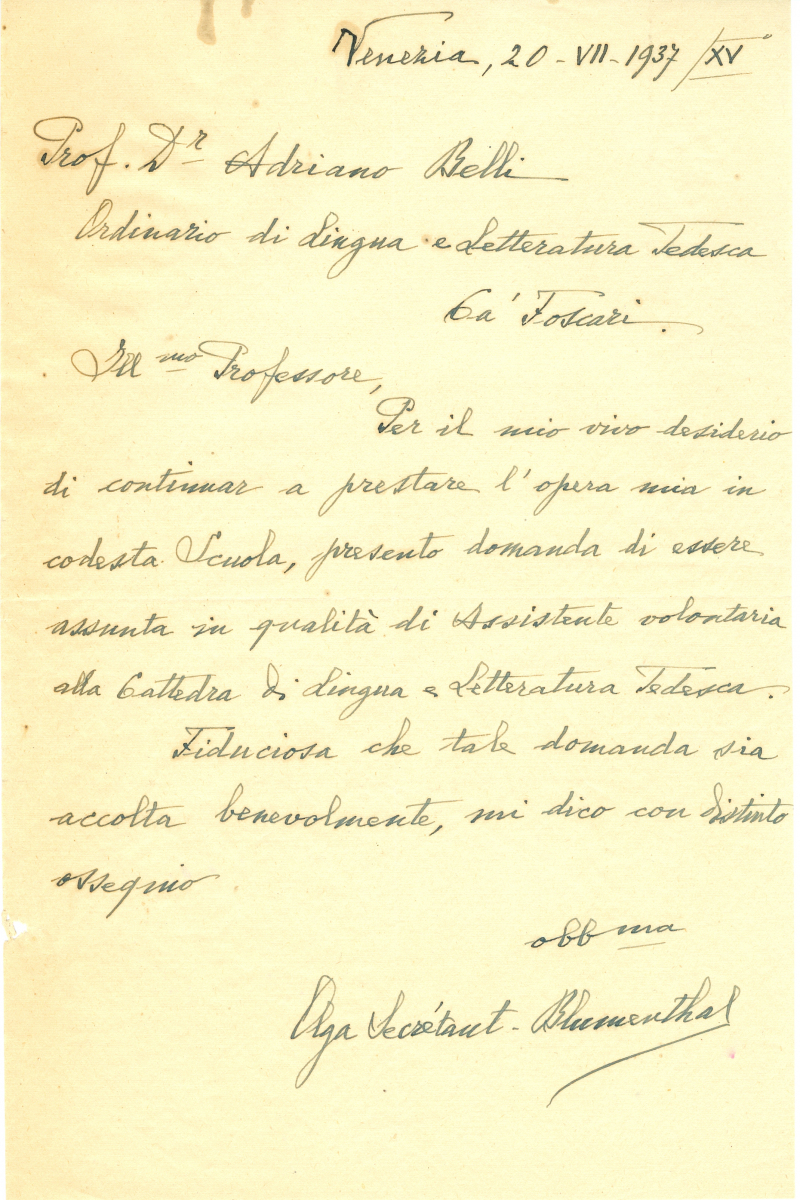 Venezia, 20 - VII - 1937 / XV°
Prof. Dr Adriano Belli
Ordinario di Lingua e Letteratura Tedesca
Ca' Foscari.
Ill mo Professore,
Per il mio vivo desiderio
di continuar a prestare l'opera mia in
codesta Scuola, presento domanda di essere
assunta in qualità di Assistente volontaria
alla Cattedra di Lingua e Letteratura Tedesca.
Fiduciosa che tale domanda sia
accolta benevolmente, mi dico con distinto
ossequio
obb ma
Olga Secrétant - Blumenthal